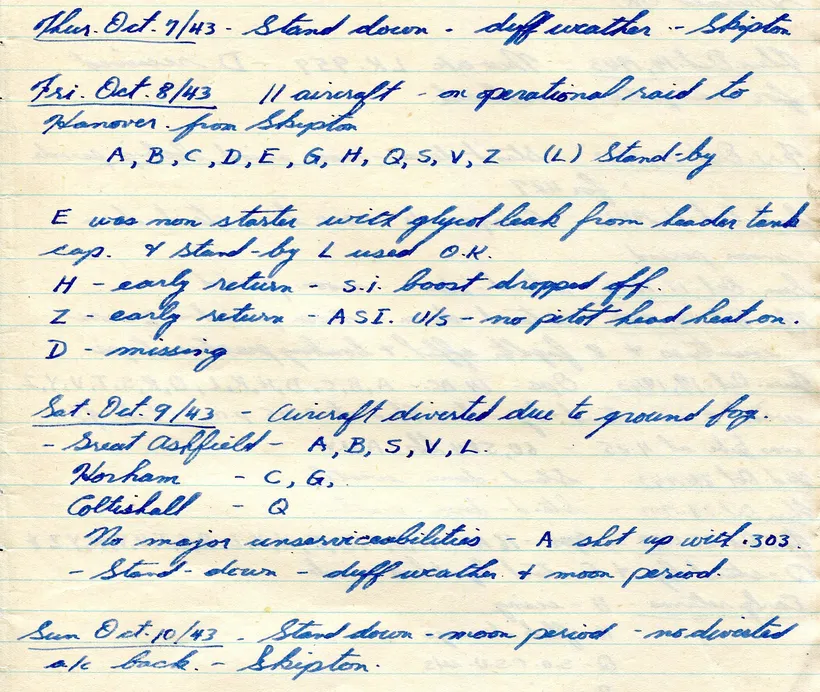 Thur. Oct. 7/43 - Stand down - duff weather - Skipton
Fri. Oct. 8/43 11 aircraft - on operational raid to
Hanover from Skipton
A, B, C, D, E, G, H, Q, S, V, Z (L) Stand-by
E was non starter with glycol leak from header tank
cap. & stand-by L used O.K.
H - early return - s.i. boost dropped off.
Z - early return - ASI. U/S - no pitot head heat on.
D - missing
Sat. Oct. 9/43 - Aircraft diverted due to ground fog.
- Great Ashfield - A, B, S, V, L.
Horham - C, G,
Coltishall - Q
No major unserviceabilities - A shot up with .303.
- Stand-down - duff weather & moon period.
Sun Oct. 10/43. - Stand down - moon period - no diverted
a/c back. - Skipton.